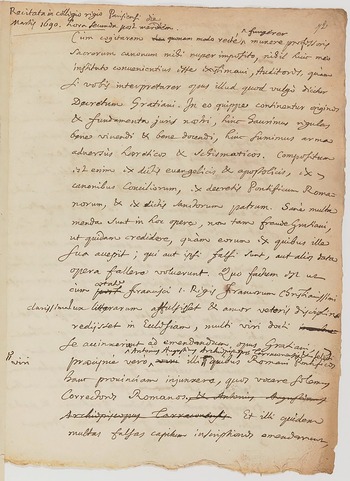 Recitata in collegio regio Parisiensi die
Martis 1690. hora secunda post meridiem
fungerer
Cum cogitarem quonam modo recte munere professoris
sacrorum canonum mihi nuper imposito, nihil huic meo
instituto convenientius esse existimavi, Auditores, quam
si vobis interpretarer opus illud quod vulgo dicitur
Decretum Gratiani. In eo quippe continentur origines
& fundamenta juris nostri, hinc haurimus regulas
bene vivendi & bene docendi, hinc sumimus arma
adversus hæreticos & schismaticos. Compositum
est enim ex dictis evangelicis & apostolicis, ex
canonibus Conciliorum, ex decretis Pontificum Roma
norum, & ex dictis sanctorum patrum. Sane multa
menda sunt in hoc opere, non tam fraude Gratiani,
ut quidam credidere, quam eorum ex quibus illa
sua accepit; qui aut ipsi falsi sunt, aut alios data
opera fallere voluerunt. Quo factum est ut
cum Francisci I. Regis Francorum Christianissimi
clarissima lux litterarum affulsisset & amor veteris disciplinæ
rediisset in Ecclesiam, multi viri docti
se accinxerint ad emendandum opus Gratiani,
Antonius Augustinus Archiepiscopus Tarraconensis
præcipue vero, illi quibus Romani Pontifices
P. viri
hanc provinciam injunxere, quos vocare solemus
Correctores Romanos, & Antonius Augustinus
Archiepiscopus Tarraconensis. Et illi quidem
multas falsas capitum inscriptiones emendarunt,